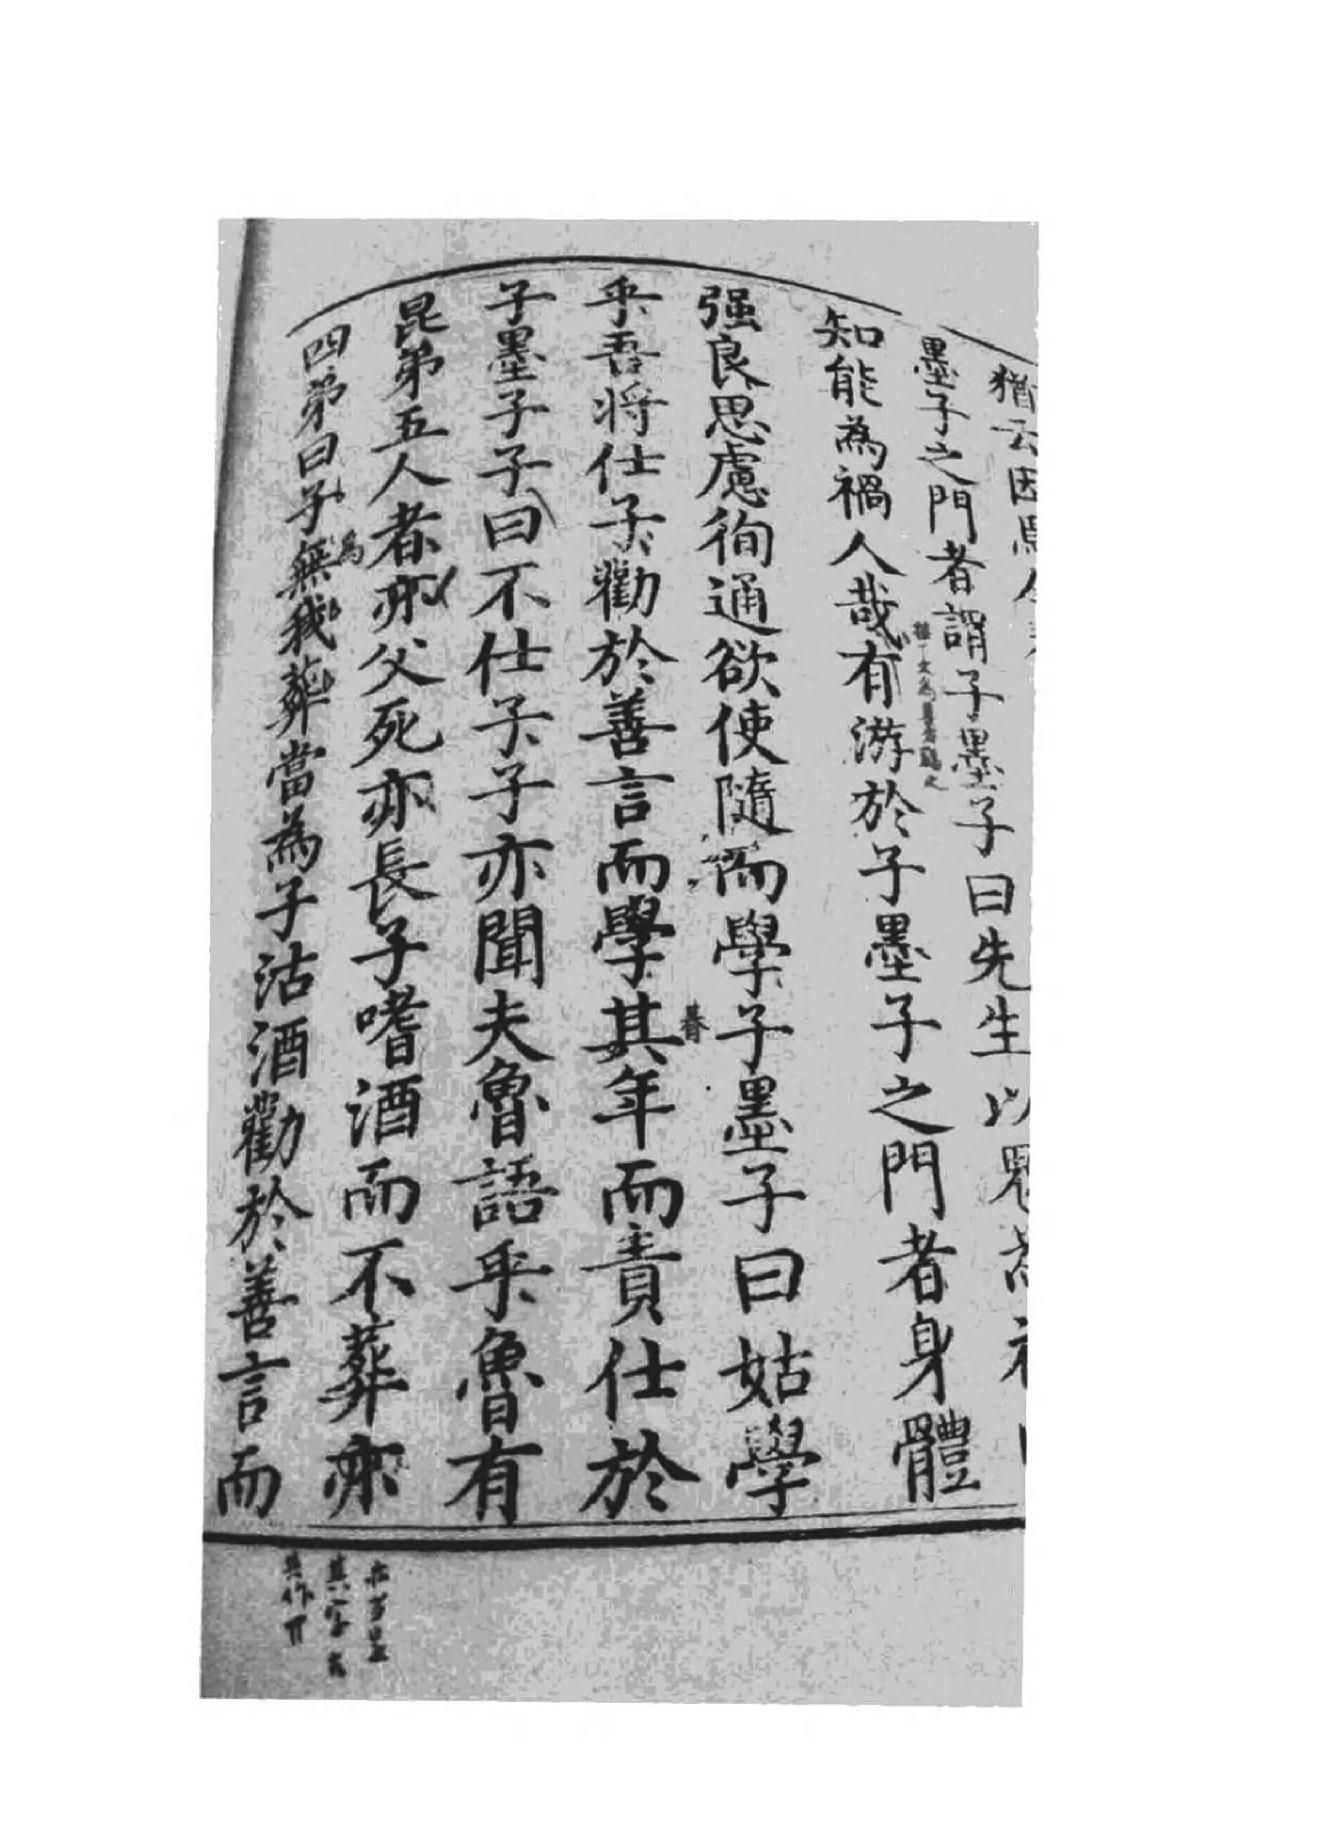 猶云因
墨子之門者謂子墨子曰先生以
知能為禍人哉有游於子墨子之門者身體
强良思慮徇通欲使隨而學子墨子曰姑學
乎吾將仕子勸於善言而學其年而責仕於
朞
子墨子子曰不仕子子亦聞夫魯語乎魯有
昆弟五人者亦父死亦長子嗜酒而不葬亦
四弟曰子無我葬當為子沽酒勸於善言而
為
其作丌